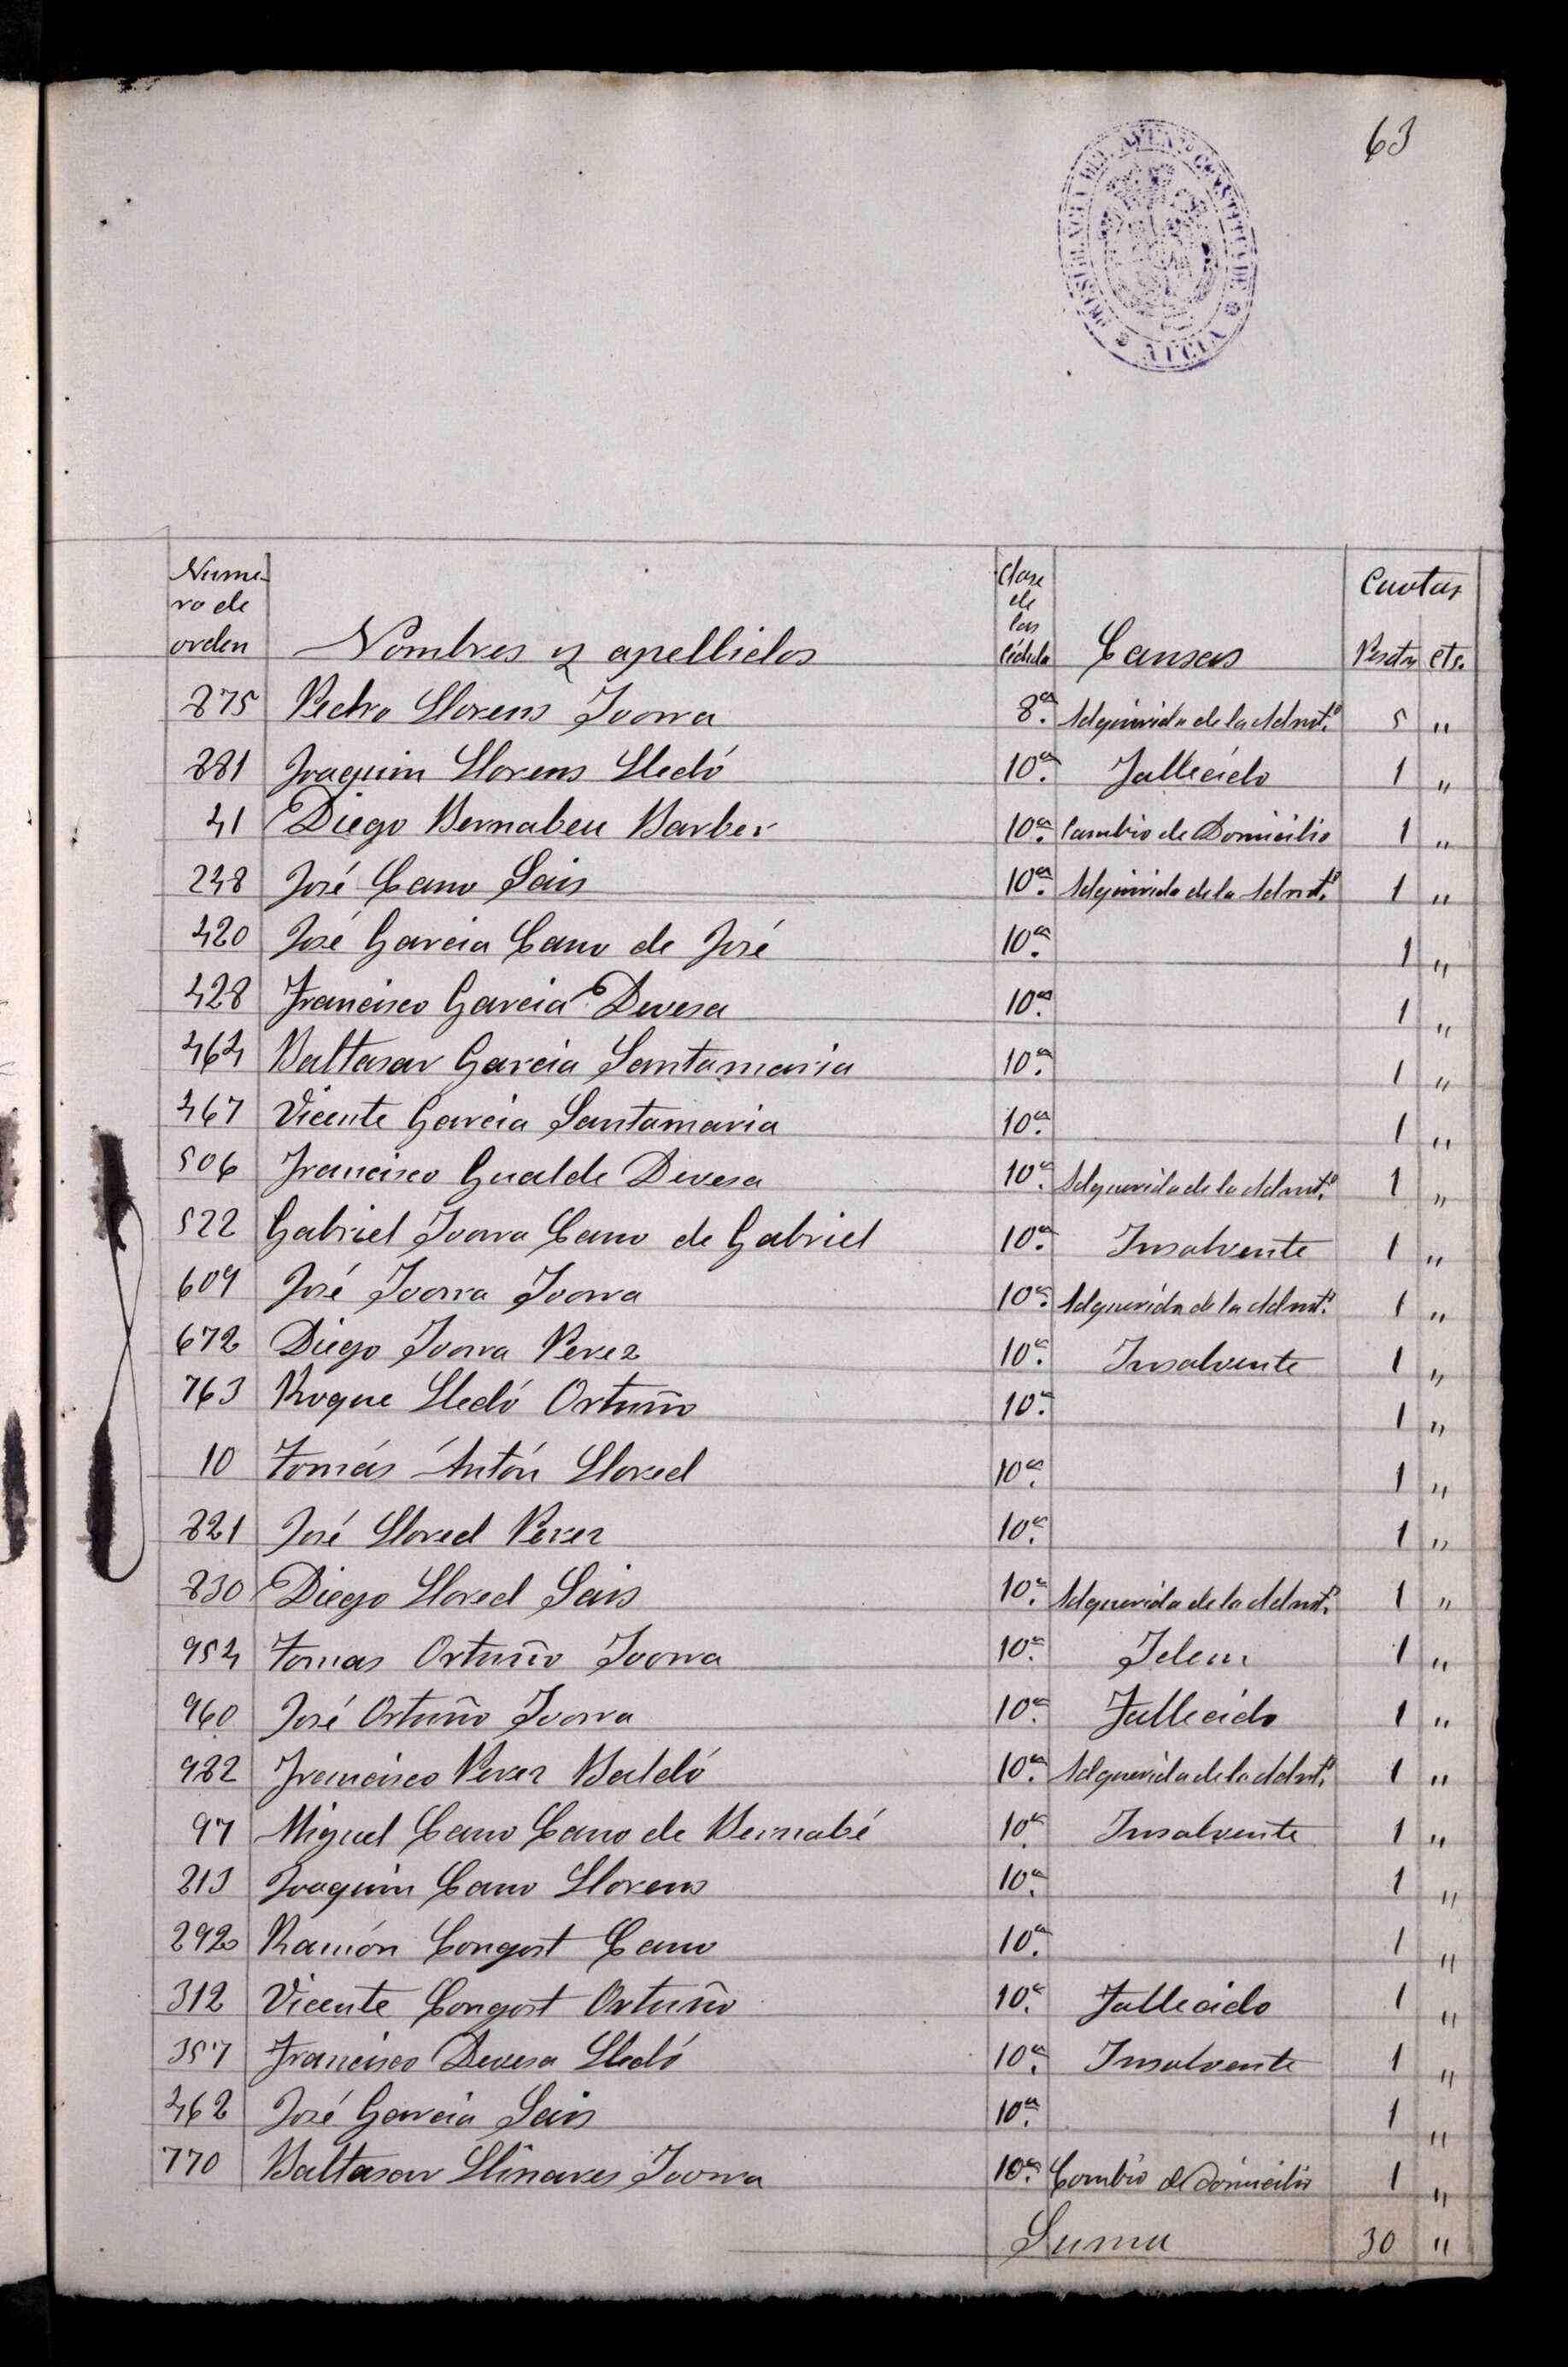 63
PRESIDENCIA DEL AYUNTO CONSTITUL DE
Nume-
ro de
orden
Nombres y apellidos
Clase
de
las
Cédula
Causas
Cuotas
Pesetas cts.
875 Pedro Llorens Ivorra 8ª. Adquirida de la Admtº. 5 "
881 Joaquin Llorens Lledó 10ª. Fallecido 1 "
41 Diego Bernabeu Barber 10ª. Cambio de Domicilio 1 "
248 José Cano Sais 10ª. Adquirida de la Admtº. 1 "
420 José Garcia Cano de José 10ª. 1 "
428 Francisco Garcia Devesa 10ª. 1 "
464 Baltasar Garcia Santamaria 10ª. 1 "
467 Vicente Garcia Santamaria 10ª. 1 "
506 Francisco Gualde Devesa 10ª. Adquerida de la Admtº. 1 "
522 Gabriel Ivorra Cano de Gabriel 10ª. Insolvente 1 "
609 José Ivorra Ivorra 10ª. Adquerida de la Admtº. 1 "
672 Diego Ivorra Perez 10ª. Insolvente 1 "
763 Roque Lledó Ortuño 10ª. 1 "
10 Tomás Antón Llored 10ª. 1 "
821 José Llored Perez 10ª. 1 "
830 Diego Llored Sais 10ª. Adquerida de la Admtº. 1 "
954 Tomas Ortuño Ivorra 10ª. Idem 1 "
960 José Ortuño Ivorra 10ª. Fallecido 1 "
982 Francisco Perez Baldó 10ª. Adquerida de la Admtº. 1 "
97 Miguel Cano Cano de Bernabé 10ª. Insolvente 1 "
213 Joaquin Cano Llorens 10ª. 1 "
292 Ramón Congost Cano 10ª. 1 "
312 Vicente Congost Ortuño 10ª. Fallecido 1 "
357 Francisco Devesa Lledó 10ª. Insolvente 1 "
462 José Garcia Sais 10ª. 1 "
770 Baltasar Llinares Ivorra 10ª. Cambio de domicilio 1 "
Suma 30 "